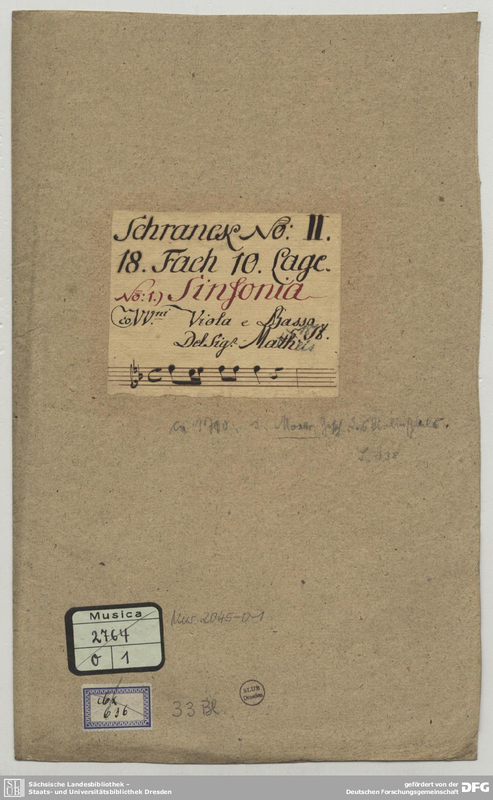 Schranck No: II.
18. Fach 10. Lage.
No: 1.) Sinfonia
co VV.ni Viola e Basso
Del Sig.
S. 338
Musica
2764
O 1
Mus. 2845-O-1
636
33 Bl.
SLUB
Dresden
Sächsische Landesbibliothek -
Staats- und Universitätsbibliothek Dresden
gefördert von der
Deutschen Forschungsgemeinschaft DFG